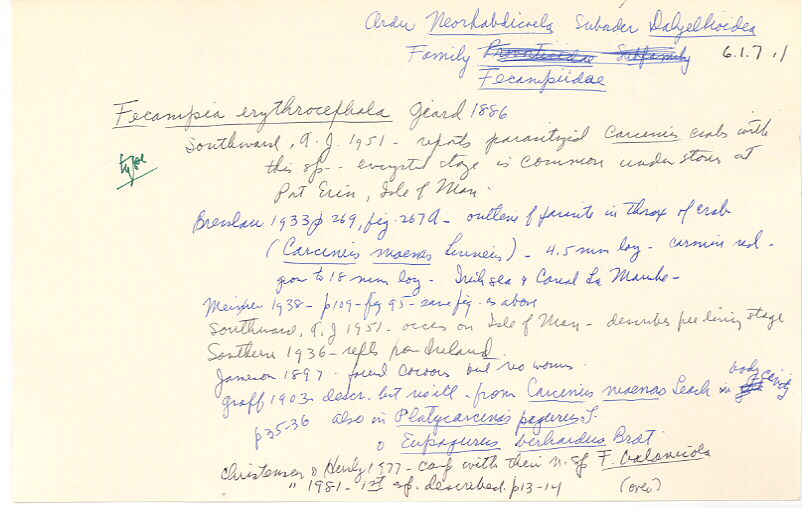 Order Neorhabdicoela Suborder Dalyellioidea
Family Provorticidae Subfamily 6.1.7.1
Fecampiidae
Fecampia erythrocephala Giard 1886
type
Southward, A.J. 1951 - reports parasitized Carcinus crabs with
this sp - encysted stage is common under stones at
Port Erin, Isle of Man.
Bresslau 1933 p 269, fig. 267A - outline of parasite in thorax of crab
(Carcinus maenas Linneis) - 4.5 mm long - carmine red -
grow to 18 mm long - Irish sea & Canal La Manche -
Meixner 1938 - p109 - fig 95 - same fig. as above
Southward, A.J 1951 - occurs on Isle of Man - describes free living stage
Southern 1936 - refs from Ireland
Jameson 1897 - found cocoons but no worms
Graff 1903 - descr. but no ill - from Carcinus maenas Leach in body cavity
p35-36 also in Platycarcinus pagurus L.
o Eupagurus berhardus Brat
Christensen & Hurly 1977 - comp with their n. sp F. balanicola
" 1981 - 1st sp. described. p13-14 (over)